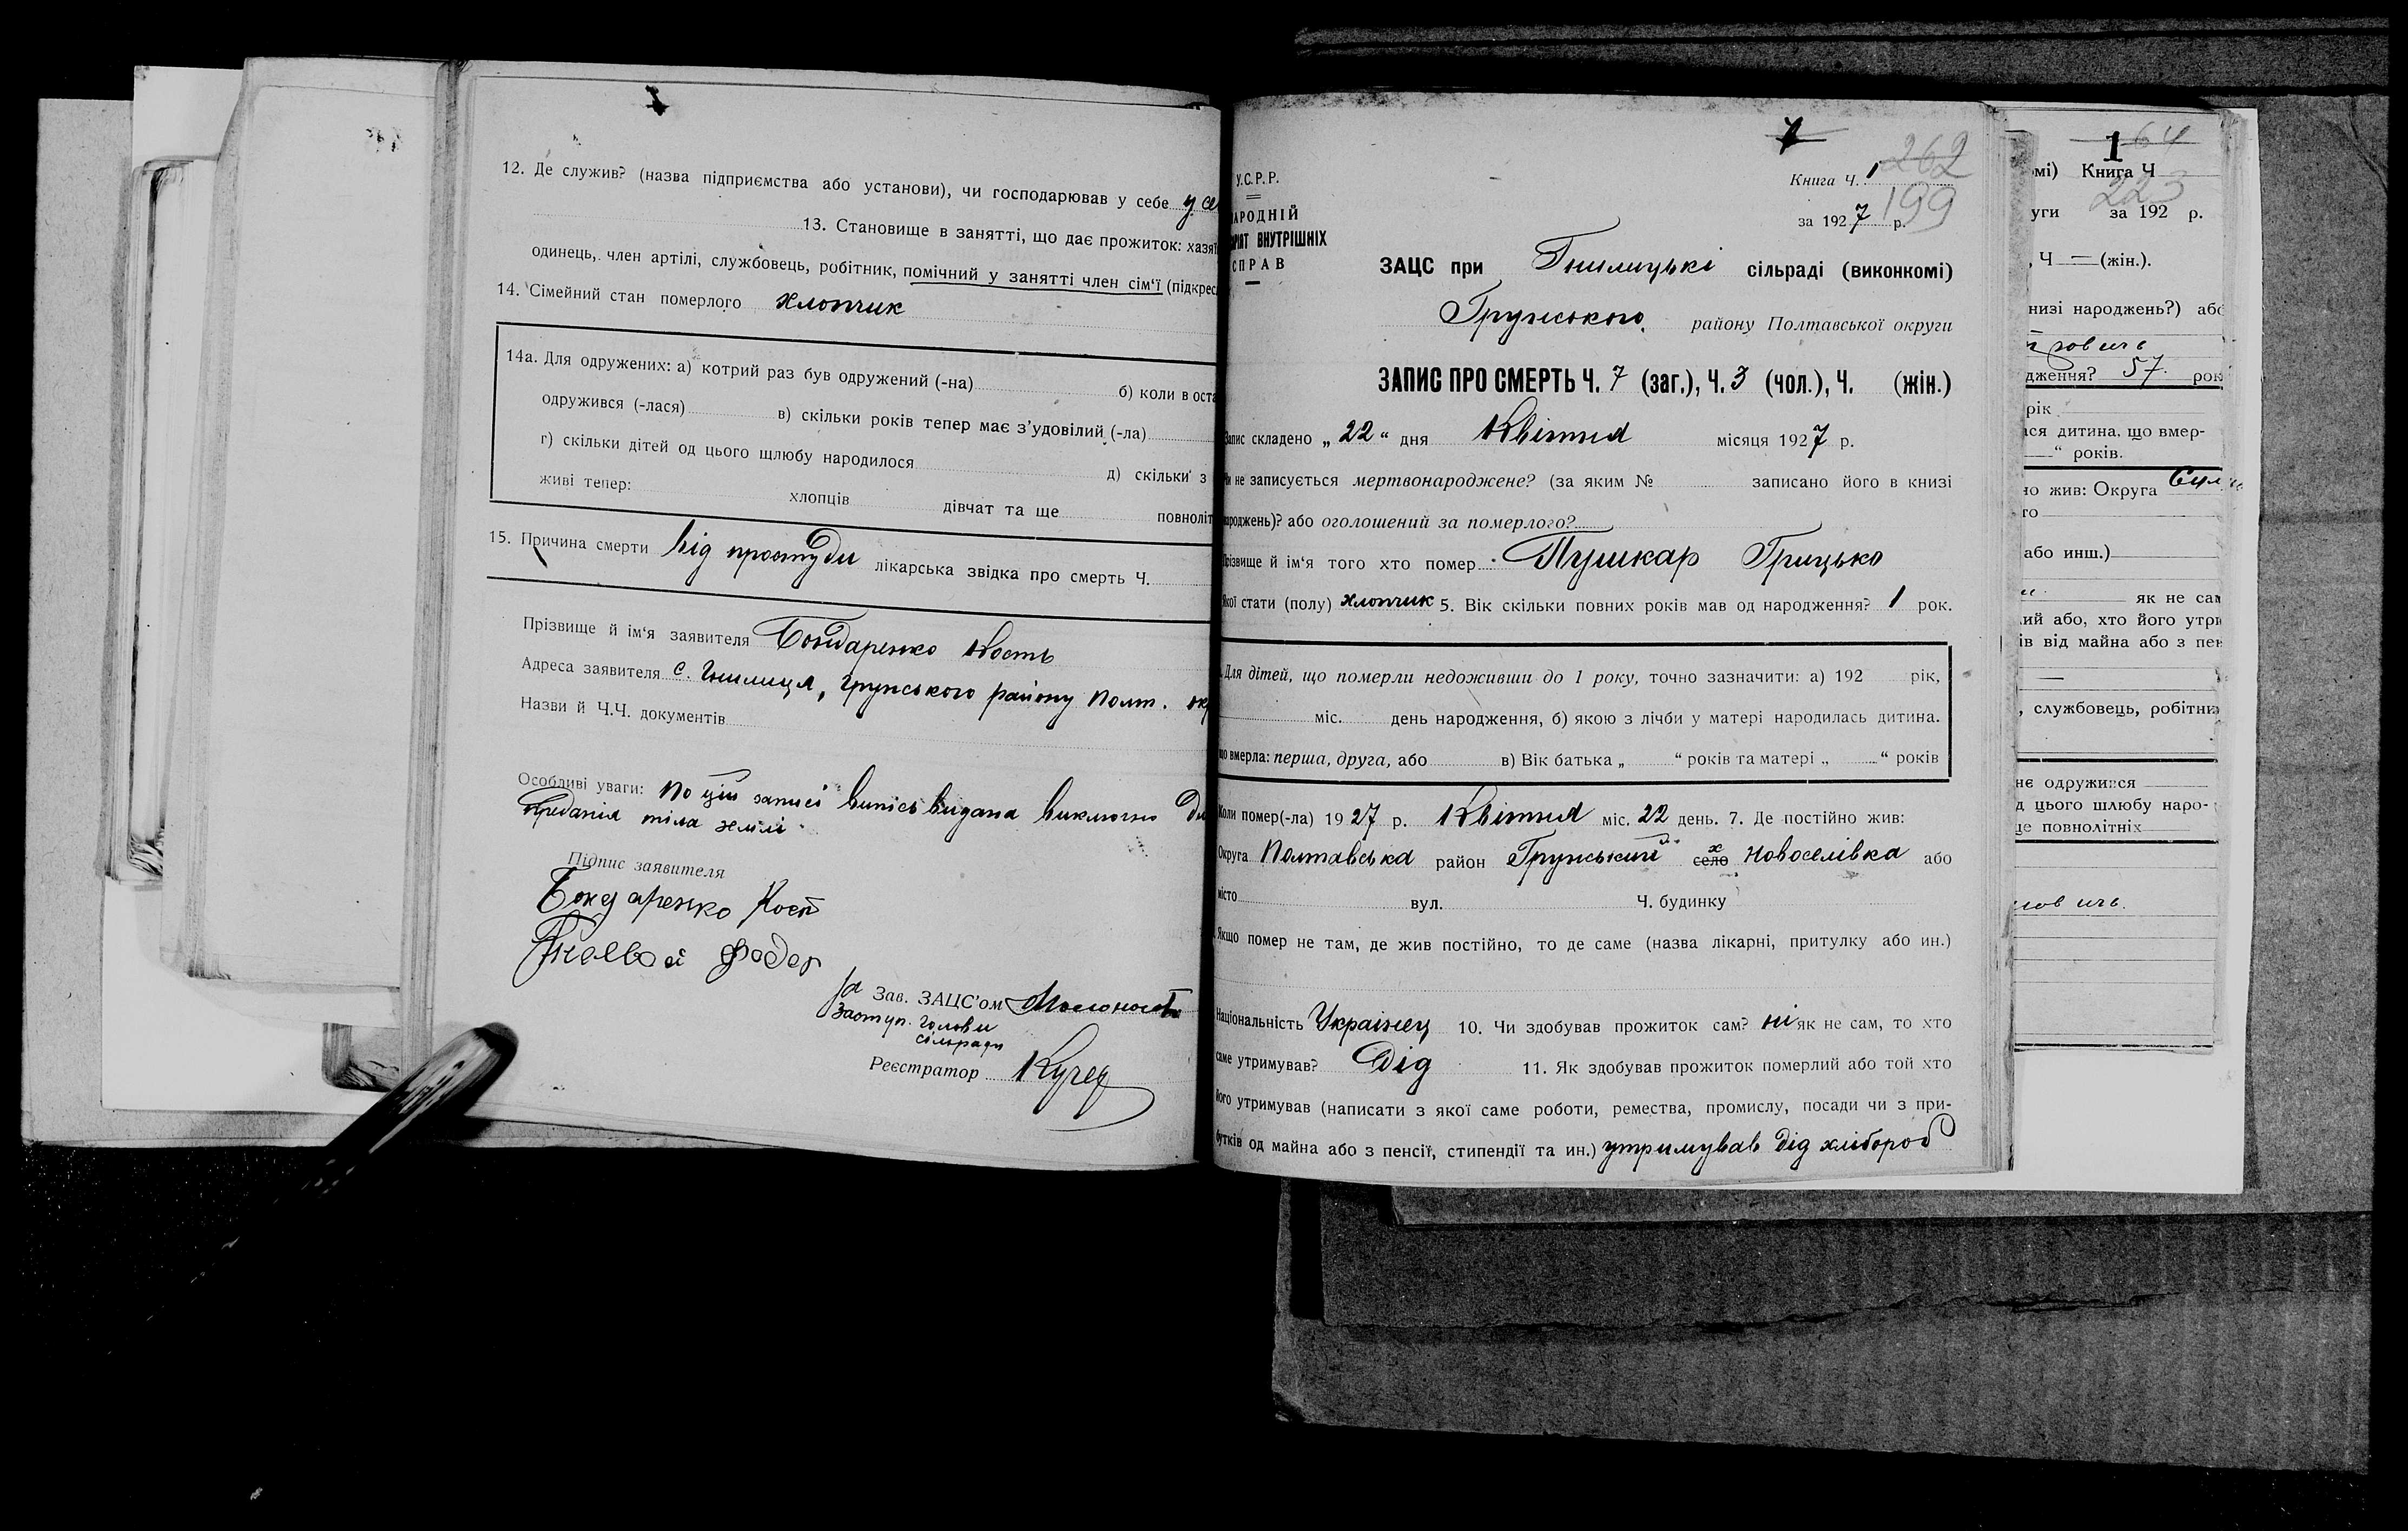 12. Де служив? (назва підприємства або установи), чи господарював у себе у се
13. Становище в занятті, що дає прожиток: хазяї
одинець, член артілі, службовець, робітник, помічний у занятті член сім'ї (підкрес
14. Сімейний стан померлого хлопчик
14а. Для одружених: а) котрий раз був одружений (-на) б) коли в оста
одружився (-лася) в) скільки років тепер має з'удовілий (-ла)
г) скільки дітей од цього шлюбу народилося д) скільки з
живі тепер: хлопців дівчат та ще повноліт
15. Причина смерти від простуди лікарська звідка про смерть Ч.
Прізвище й ім'я заявителя Бондаренко Кость
Адреса заявителя с. Гнилиця, Грунського району Полт. окр
Назви й Ч.Ч. документів
Особливі уваги: По цій записі випісь видана виключно дл
предания тіла землі
Підпис заявителя
Бондаренко Кост
Федор
За Зав. ЗАЦС'ом
Заступ. голови
сільради
Реєстратор Кучер
7
262
Книга Ч. 1
199
за 1927 р.
У.С.Р.Р.
АРОДНІЙ
АРІЯТ ВНУТРІШНІХ
СПРАВ
ЗАЦС при Гнилицькі сільраді (виконкомі)
Грунського району Полтавської округи
ЗАПИС ПРО СМЕРТЬ Ч. 7 (заг.), Ч. 3 (чол.), Ч. (жін.)
Запис складено „22“ дня Квітня місяця 1927 р.
Чи не записується мертвонароджене? (за яким № записано його в книзі
народжень)? або оголошений за померлого?
Прізвище й ім'я того хто помер Пушкар Грицько
Якої стати (полу) хлопчик 5. Вік скільки повних років мав од народження? 1 рок.
Для дітей, що померли недоживши до 1 року, точно зазначити: а) 192 рік,
міс. день народження, б) якою з лічби у матері народилась дитина.
що вмерла: перша, друга, або в) Вік батька „ “ років та матері „ “ років
Коли помер(-ла) 1927 р. Квітня міс. 22 день. 7. Де постійно жив:
Округа Полтавська район Грунський село х Новоселівка або
місто вул. Ч. будинку
Якщо помер не там, де жив постійно, то де саме (назва лікарні, притулку або ин.)
Національність Українец 10. Чи здобував прожиток сам? ні як не сам, то хто
саме утримував? Дід 11. Як здобував прожиток померлий або той хто
його утримував (написати з якої саме роботи, ремества, промислу, посади чи з при-
бутків од майна або з пенсії, стипендії та ин.) утримував дід хлібороб
1 64
мі) Книга Ч
223
уги за 192 р.
, Ч — (жін.).
низі народжень?) або
ович
дження? 57 рок
рік
ся дитина, що вмер-
“ років.
но жив: Округа
го
або инш.)
як не сам
ий або, хто його утри
ів від майна або з пен
, службовець, робітни
нє одружився
д цього шлюбу наро-
ще повнолітніх
ович.